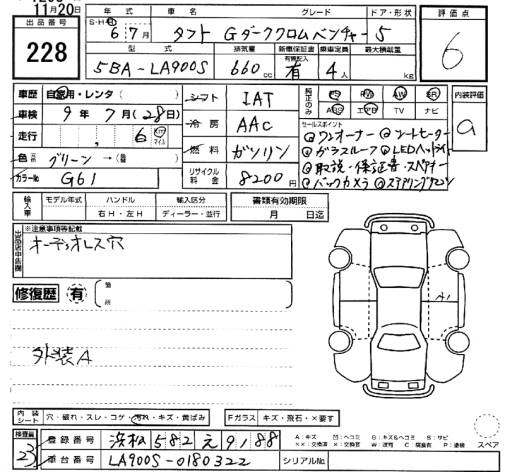 1月20日
出品番号
228
年式 車名 グレード ドア・形状
S・H 6年7月 タフト Gダーククロムベンチャー 5
型式 排気量 新車保証書 乗車定員 最大積載量
有 記録簿
5BA-LA900S 660cc 有 4人 kg
評価点
6
車歴 自家用・レンタ( )
車検 9年7月(28日)
走行 , 6 Km マイル
色 グリーン→( )
カラーNo G61
シフト IAT
冷房 AAC
燃料 ガソリン
リサイクル料金 8200円
純正のみ PS PW AW SR
ABS エアB TV ナビ
内装評価
a
セールスポイント
◎ワンオーナー ◎シートヒーター
◎ガラスルーフ ◎LEDヘッドライト
◎取説・保証書・スペアキー
◎バックカメラ ◎ステアリングリモコン
輸入車 モデル年式 ハンドル 輸入区分
年 右H・左H ディーラー・並行
書類有効期限
月 日迄
※注意事項等記載
オーディオレス穴
修復歴 有 箇所
外装A
A1
内装シート 穴・破れ・スレ・コゲ・汚れ・キズ・黄ばみ
Fガラス キズ・飛石・×要す
スペア
検査員
23
登録番号 浜松 582 え 9188
車台番号 LA900S-0180322
シリアルNo